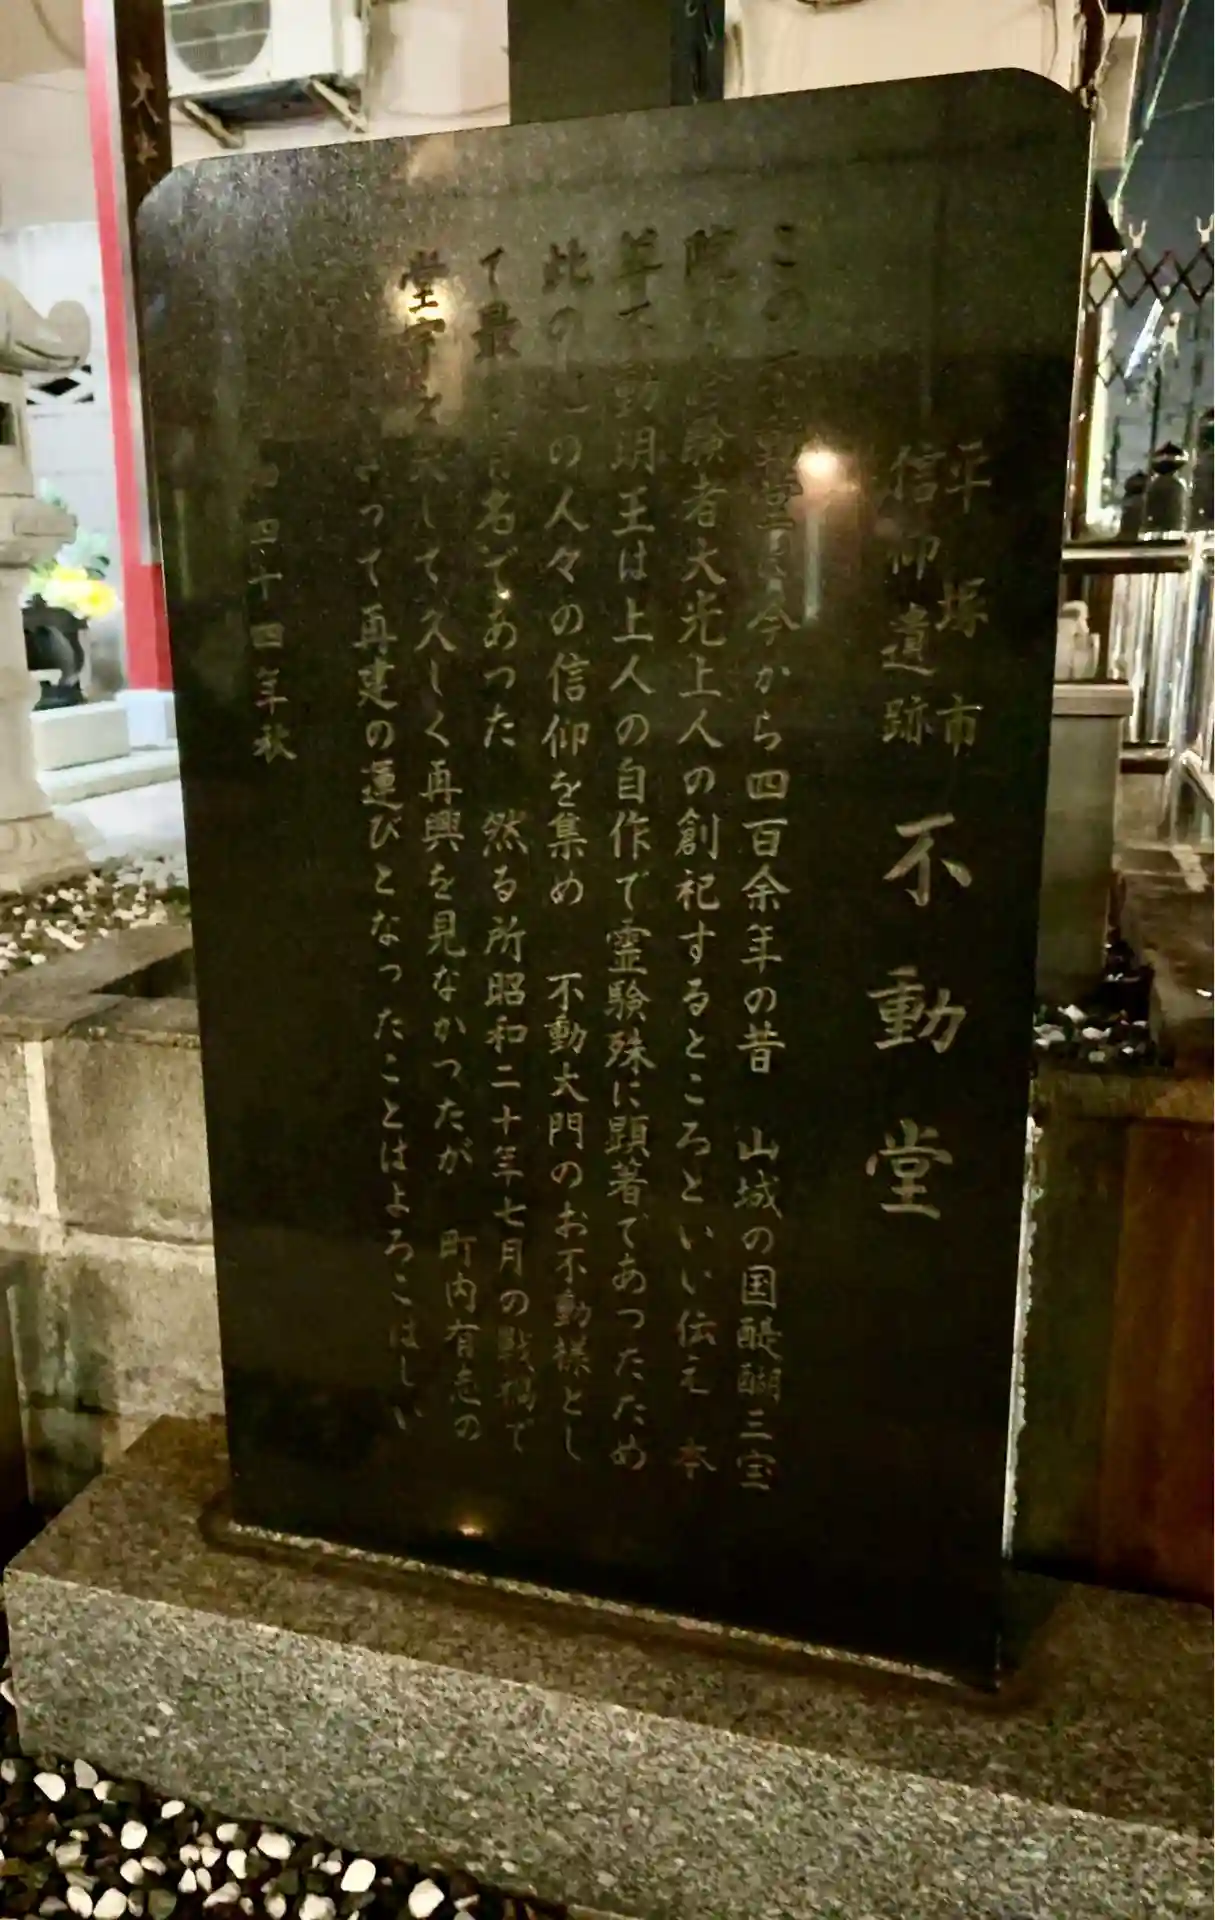 平塚市
信仰遺跡
不動堂
この不動堂は今から四百余年の昔　山城の国醍醐三宝
院の 験者大光上人の創祀するところといい伝え　本
尊不動明王は上人の自作で霊験殊に顕著であつたため
此の の人々の信仰を集め　不動大門のお不動様とし
て最 名であつた　然る所昭和二十年七月の戦禍で
堂宇を失して久しく再興を見なかつたが　町内有志の
よって再建の運びとなったことはよろこばしい
四十四年秋